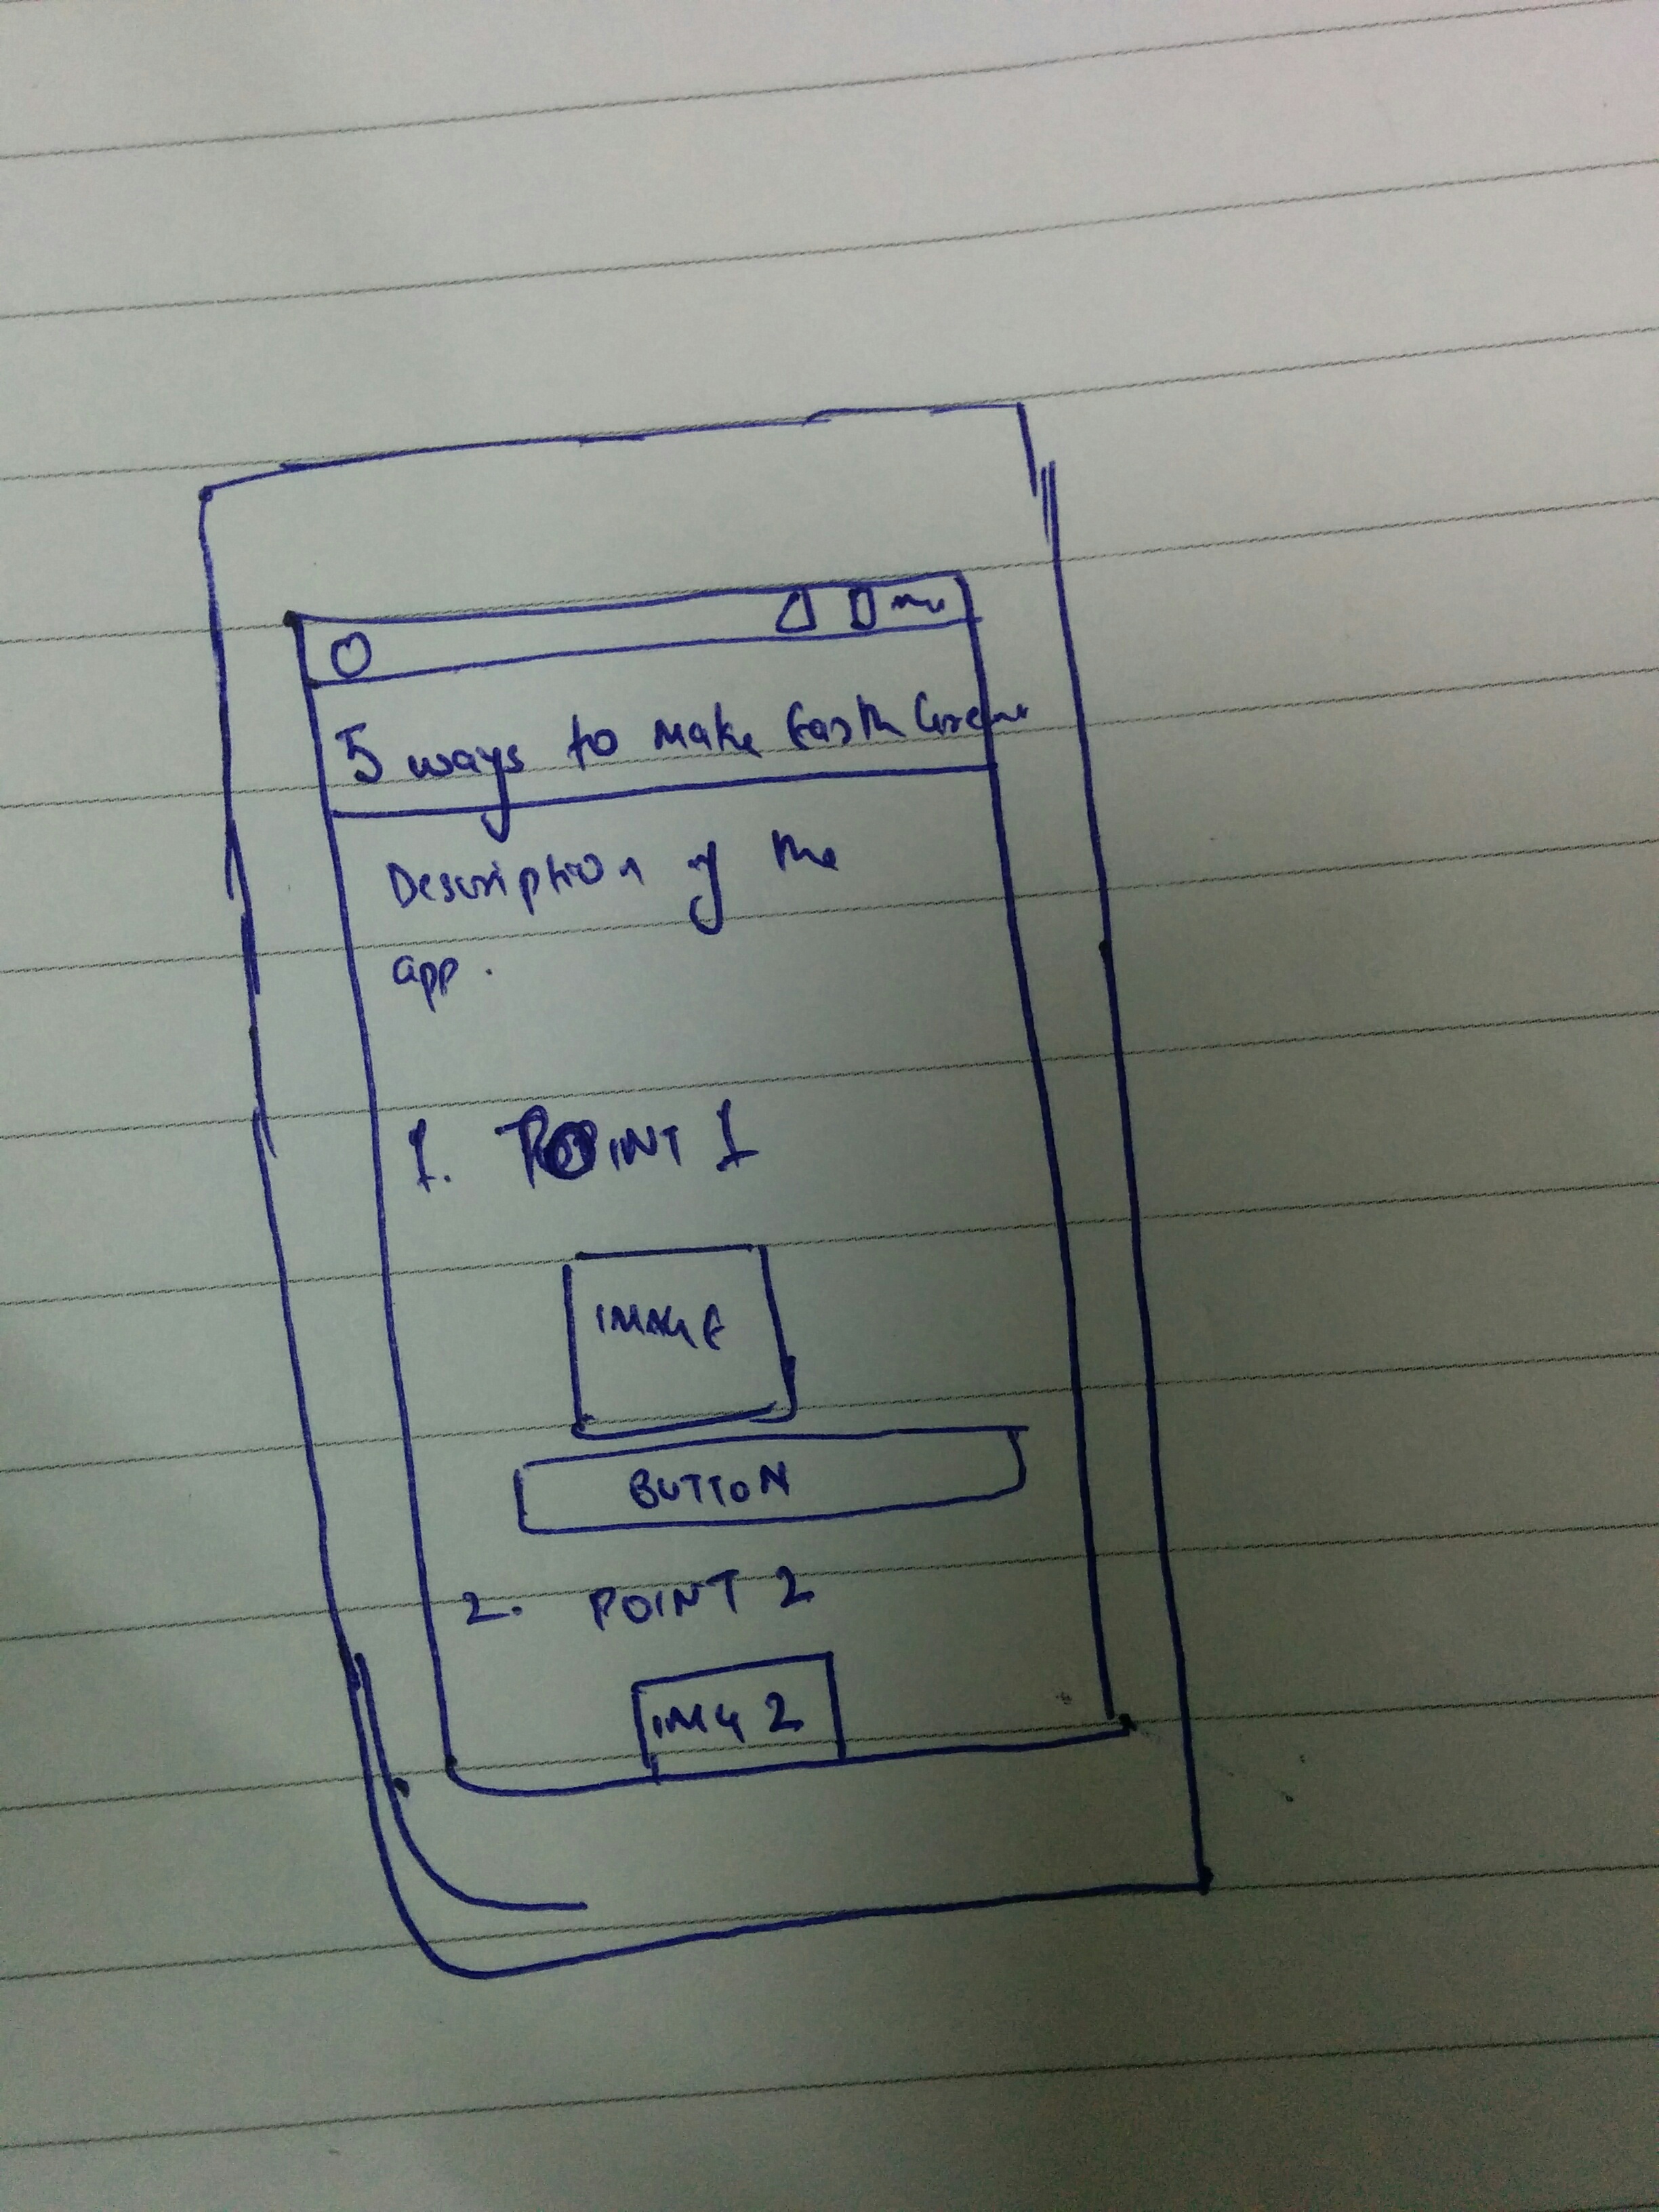 5 ways to make Earth Green
Description of the
app.
1. POINT 1
IMAGE
BUTTON
2. POINT 2
IMG 2